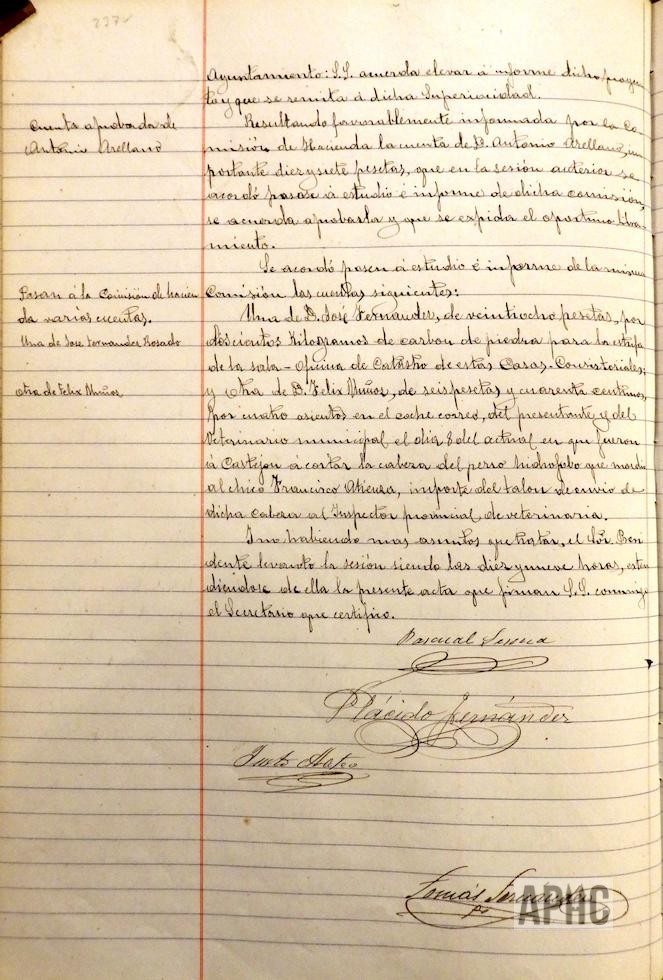 237
Ayuntamiento: S.S. acuerda elevar á informe dicho proyec
to y que se remita á dicha Superioridad.
Cuenta aprobada de
Antonio Arellano
Resultando favorablemente informada por la Co
misión de Hacienda la cuenta de D. Antonio Arellano, im
portante diez y siete pesetas, que en la sesión anterior se
acordó pasase á estudio é informe de dicha comisión,
se acuerda aprobarla y que se expida el oportuno libra-
miento.
Se acordó pasen á estudio é informe de la misma
Comisión las cuentas siguientes:
Pasan á la Comisión de Hacien
da varias cuentas.
Una de Jose Fernandez Rosado
Una de D. José Fernandez, de veintiocho pesetas, por
doscientos Kilogramos de carbon de piedra para la estufa
de la sala-oficina de Catastro de estas Casas-Consistoriales;
Otra de Felix Muñoz
y otra de D. Felix Muñoz, de seis pesetas y cuarenta centimos,
por cuatro asientos en el coche correo, del presentante y del
Veterinario municipal el dia 8 del actual en que fueron
á Castejon á cortar la cabeza del perro hidrofobo que mordió
al chico Francisco Atienza, importe del talon de envio de
dicha cabeza al Inspector provincial de veterinaria.
Y no habiendo mas asuntos que tratar, el Sór Presi
dente levantó la sesión siendo las diez y nueve horas, exten
diéndose de ella la presente acta que firman S.S. conmigo
el Secretario que certifico.
Pascual
Plácido Fernández
Justo Mateo
Tomás Fernández
APHC